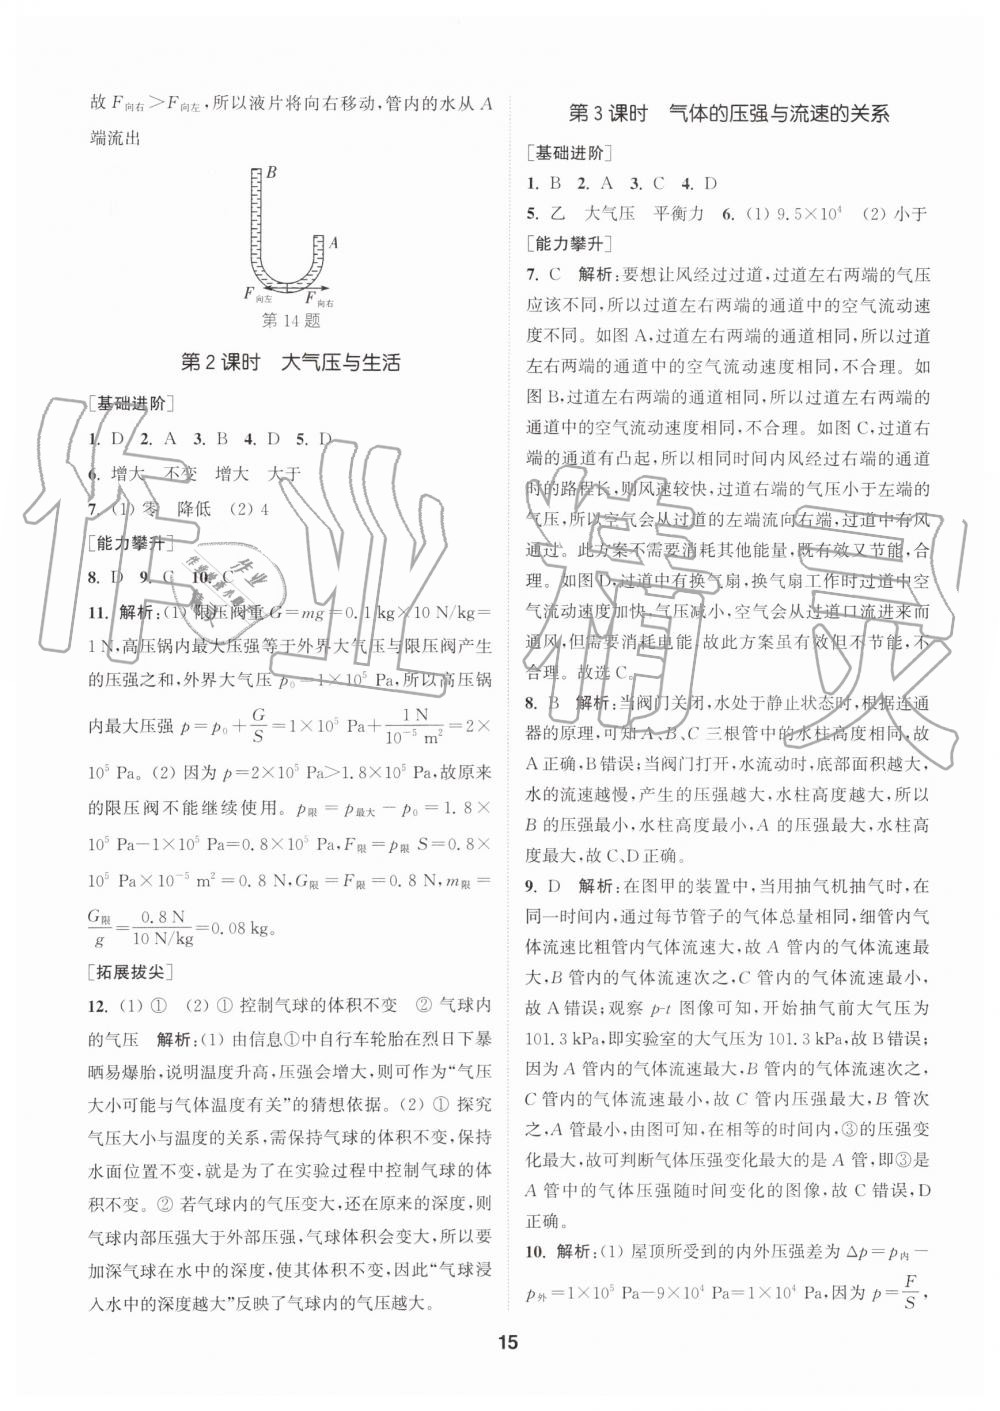 故 F向右＞F向左,所以液片将向右移动,管内的水从 A
端流出
B
A
F向左 F向右
第14题
第2课时 大气压与生活
[基础进阶]
1. D 2. A 3. B 4. D 5. D
6. 增大 不变 增大 大于
7. (1) 零 降低 (2) 4
[能力攀升]
8. D 9. C 10. C
11. 解析:(1) 限压阀重 G=mg=0.1 kg×10 N/kg=
1 N,高压锅内最大压强等于外界大气压与限压阀产生
的压强之和,外界大气压 p₀=1×10⁵ Pa,所以高压锅
内最大压强 p=p₀+G/S=1×10⁵ Pa+1 N/10⁻⁵ m²=2×
10⁵ Pa。(2) 因为 p=2×10⁵ Pa＞1.8×10⁵ Pa,故原来
的限压阀不能继续使用。p限=p最大－p₀=1.8×
10⁵ Pa－1×10⁵ Pa=0.8×10⁵ Pa,F限=p限 S=0.8×
10⁵ Pa×10⁻⁵ m²=0.8 N,G限=F限=0.8 N,m限=
G限/g=0.8 N/10 N/kg=0.08 kg。
[拓展拔尖]
12. (1) ① (2) ① 控制气球的体积不变 ② 气球内
的气压 解析:(1) 由信息①中自行车轮胎在烈日下暴
晒易爆胎,说明温度升高,压强会增大,则可作为“气压
大小可能与气体温度有关”的猜想依据。(2) ① 探究
气压大小与温度的关系,需保持气球的体积不变,保持
水面位置不变,就是为了在实验过程中控制气球的体
积不变。② 若气球内的气压变大,还在原来的深度,则
气球内部压强大于外部压强,气球体积会变大,所以要
加深气球在水中的深度,使其体积不变,因此“气球浸
入水中的深度越大”反映了气球内的气压越大。
第3课时 气体的压强与流速的关系
[基础进阶]
1. B 2. A 3. C 4. D
5. 乙 大气压 平衡力 6. (1) 9.5×10⁴ (2) 小于
[能力攀升]
7. C 解析:要想让风经过过道,过道左右两端的气压
应该不同,所以过道左右两端的通道中的空气流动速
度不同。如图 A,过道左右两端的通道相同,所以过道
左右两端的空气流动速度相同,不合理。如
图 B,过道左右两端的通道相同,所以过道左右两端的
通道中的空气流动速度相同,不合理。如图 C,过道右
端的通道有凸起,所以相同时间内风经过右端的通道
时的路程长,则风速较快,过道右端的气压小于左端的
气压,所以空气会从过道的左端流向右端,过道中有风
通过。此方案不需要消耗其他能量,既有效又节能,合
理。如图 D,过道中有换气扇,换气扇工作时过道中空
气流动速度加快,气压减小,空气会从过道口流进来而
通风,但需要消耗电能,故此方案虽有效但不节能,不
合理。故选 C。
8. B 解析:当阀门关闭,水处于静止状态时,根据连通
器的原理,可知 A、B、C 三根管中的水柱高度相同,故
A 正确,B 错误;当阀门打开,水流动时,底部面积越大,
水的流速越慢,产生的压强越大,水柱高度越大,所以
B 的压强最小,水柱高度最小,A 的压强最大,水柱高
度最大,故 C、D 正确。
9. D 解析:在图甲的装置中,当用抽气机抽气时,在
同一时间内,通过每节管子的气体总量相同,细管内气
体流速比粗管内气体流速大,故 A 管内的气体流速最
大,B 管内的气体流速次之,C 管内的气体流速最小,
故 A 错误;观察 p-t 图像可知,开始抽气前大气压为
101.3 kPa,即实验室的大气压为 101.3 kPa,故 B 错误;
因为 A 管内的气体流速最大,B 管内的气体流速次之,
C 管内的气体流速最小,故 C 管内压强最大,B 管次
之,A 管最小,由图可知,在相等的时间内,③的压强变
化最大,故可判断气体压强变化最大的是 A 管,即③是
A 管中的气体压强随时间变化的图像,故 C 错误,D
正确。
10. 解析:(1) 屋顶所受到的内外压强差为 Δp=p内－
p外=1×10⁵ Pa－9×10⁴ Pa=1×10⁴ Pa,因为 p=F/S,
15
作业精灵